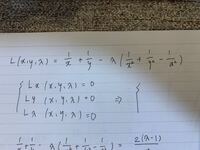 L(x,y,λ) = 1/x + 1/y - λ(1/x² + 1/y² - 1/a²)
{ Lx (x,y,λ) = 0
Ly (x,y,λ) = 0 ⇒ {
Lλ (x,y,λ) = 0
2(λ-1)